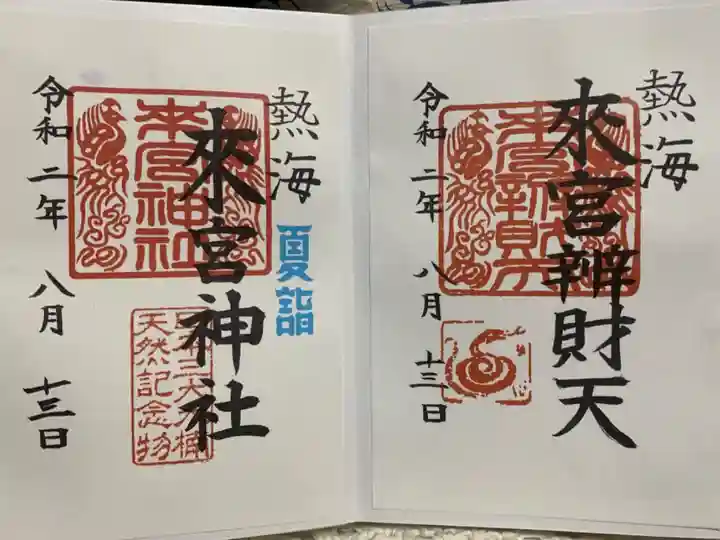 熱海
來宮辨財天
來宮辨財天
令和二年 八月 十三日
熱海
夏詣
來宮神社
來宮神社
日本三大大楠
天然記念物
令和二年 八月 十三日